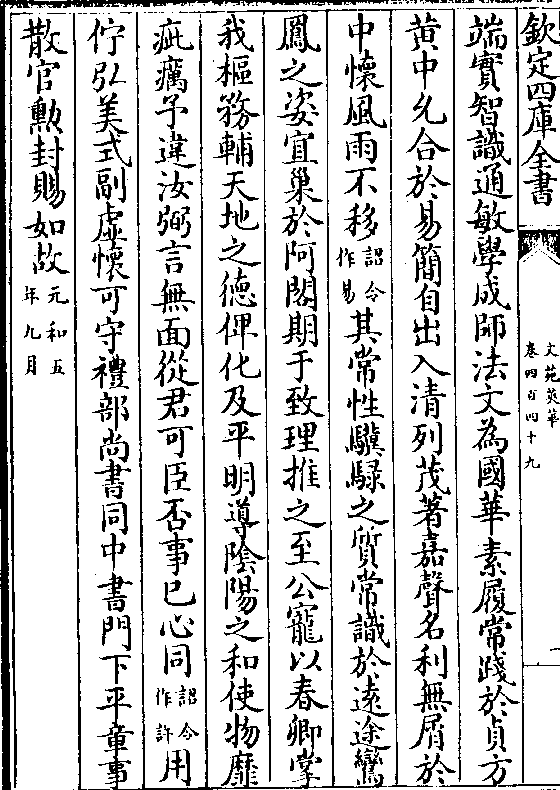 欽定四庫全書
文苑英華
卷四百四十九
端實智識通敏學成師法文為國華素履常踐於貞方
黄中允合於易簡自出入清列茂著嘉聲名利無屑於
中懷風雨不移詔令作易其常性驥騄之質常識於遠途鸞
鳳之姿宜巢於阿閣期于致理推之至公寵以春卿掌
我樞務輔天地之徳俾化及平明導陰陽之和使物靡
疵癘予違汝弼言無面從君可臣否事已心同詔令作許用
佇弘美式副虛懷可守禮部尚書同中書門下平章事
散官勲封賜如故元和五年九月